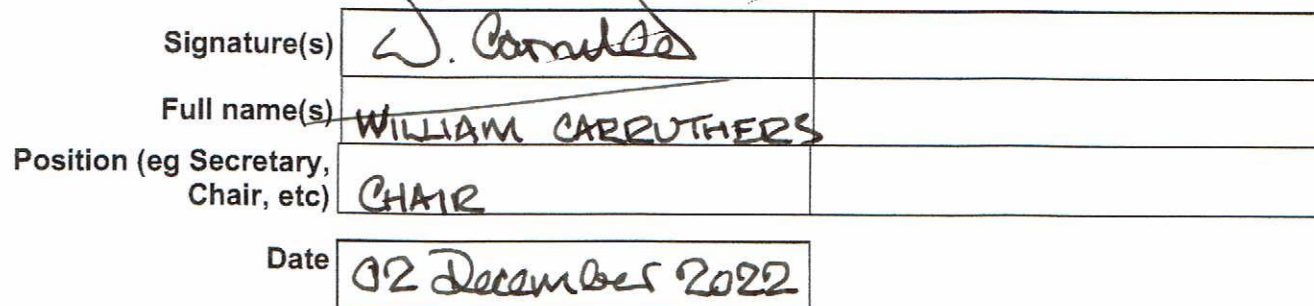 Signature(s) W. Carruthers
Full name(s) WILLIAM CARRUTHERS
Position (eg Secretary,
Chair, etc) CHAIR
Date 02 December 2022